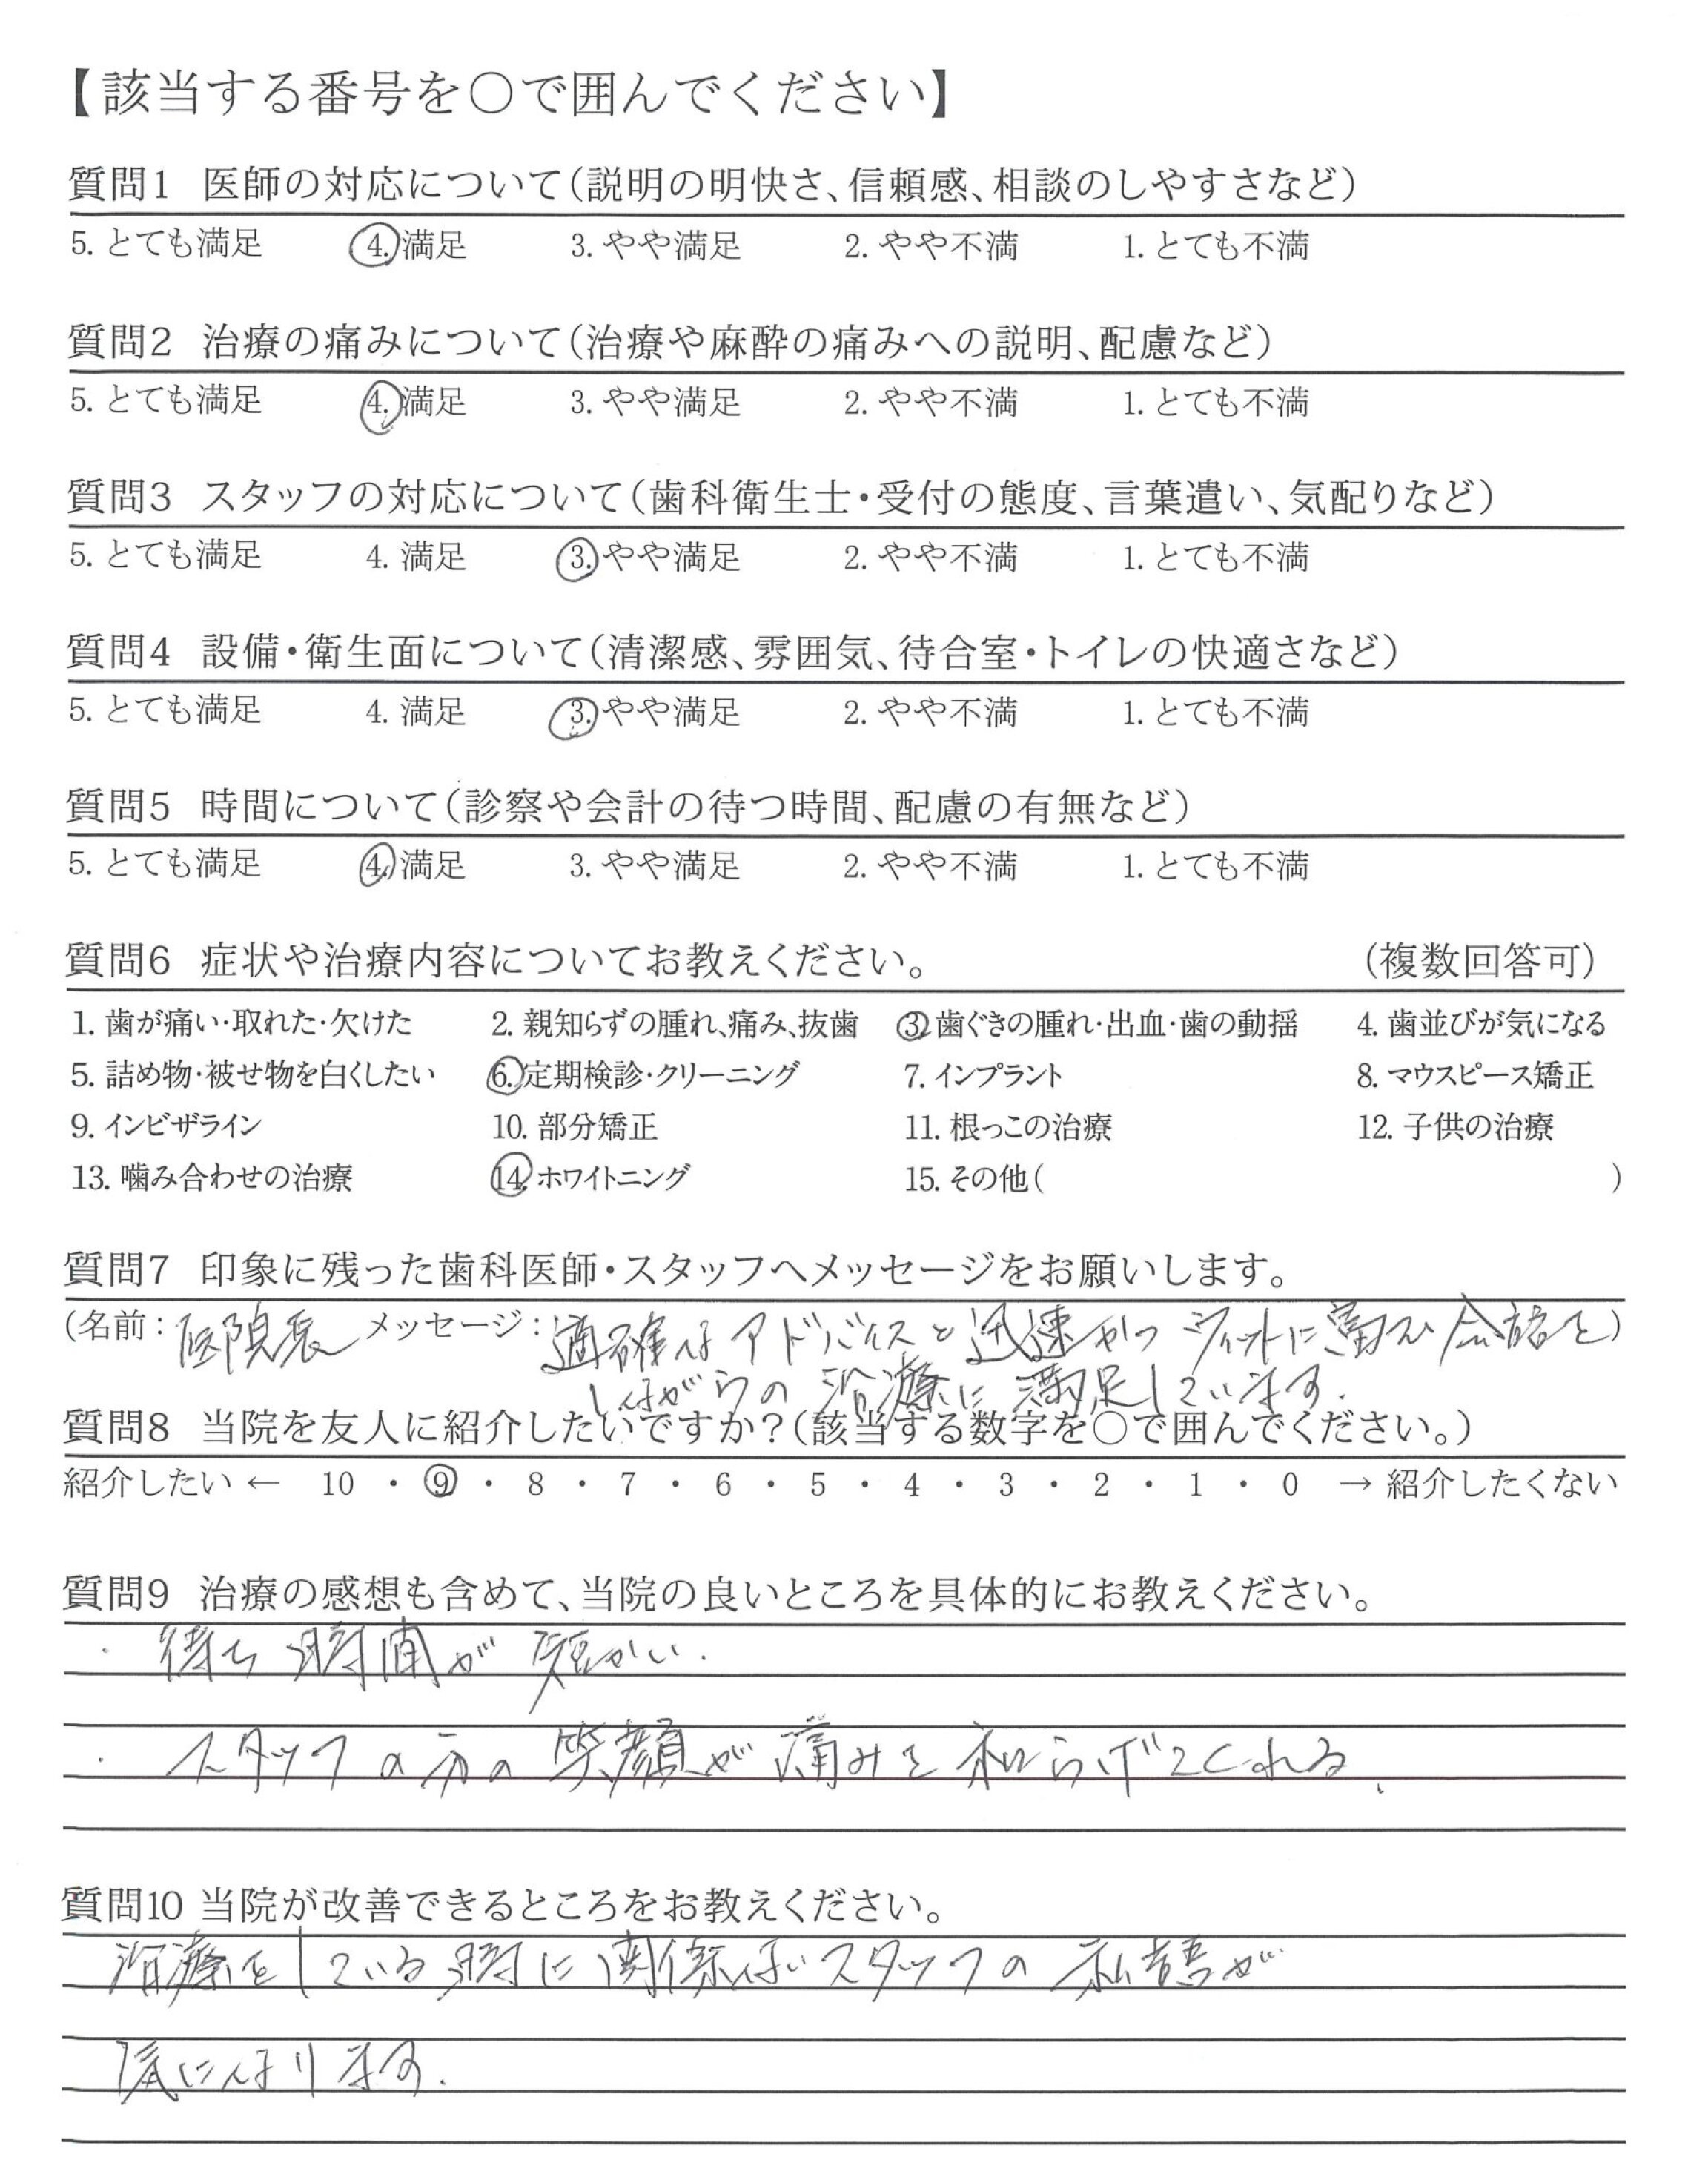 【該当する番号を○で囲んでください】
質問1 医師の対応について(説明の明快さ、信頼感、相談のしやすさなど)
5. とても満足 4. 満足 3. やや満足 2. やや不満 1. とても不満
質問2 治療の痛みについて(治療や麻酔の痛みへの説明、配慮など)
5. とても満足 4. 満足 3. やや満足 2. やや不満 1. とても不満
質問3 スタッフの対応について(歯科衛生士・受付の態度、言葉遣い、気配りなど)
5. とても満足 4. 満足 3. やや満足 2. やや不満 1. とても不満
質問4 設備・衛生面について(清潔感、雰囲気、待合室・トイレの快適さなど)
5. とても満足 4. 満足 3. やや満足 2. やや不満 1. とても不満
質問5 時間について(診察や会計の待つ時間、配慮の有無など)
5. とても満足 4. 満足 3. やや満足 2. やや不満 1. とても不満
質問6 症状や治療内容についてお教えください。 (複数回答可)
1. 歯が痛い・取れた・欠けた 2. 親知らずの腫れ、痛み、抜歯 3. 歯ぐきの腫れ・出血・歯の動揺 4. 歯並びが気になる
5. 詰め物・被せ物を白くしたい 6. 定期検診・クリーニング 7. インプラント 8. マウスピース矯正
9. インビザライン 10. 部分矯正 11. 根っこの治療 12. 子供の治療
13. 噛み合わせの治療 14. ホワイトニング 15. その他( )
質問7 印象に残った歯科医師・スタッフへメッセージをお願いします。
(名前: 医院長 メッセージ: 適確なアドバイスと迅速かつ ウィットに富んだ会話を)
しながらの 治療に 満足しています.
質問8 当院を友人に紹介したいですか?(該当する数字を○で囲んでください。)
紹介したい ← 10 ・ 9 ・ 8 ・ 7 ・ 6 ・ 5 ・ 4 ・ 3 ・ 2 ・ 1 ・ 0 → 紹介したくない
質問9 治療の感想も含めて、当院の良いところを具体的にお教えください。
・ 待ち時間が 短かい.
・ スタッフの方の 笑顔が 痛みを 和らげてくれる.
質問10 当院が改善できるところをお教えください。
治療をしている時に 関係ないスタッフの 私語が
気になります.